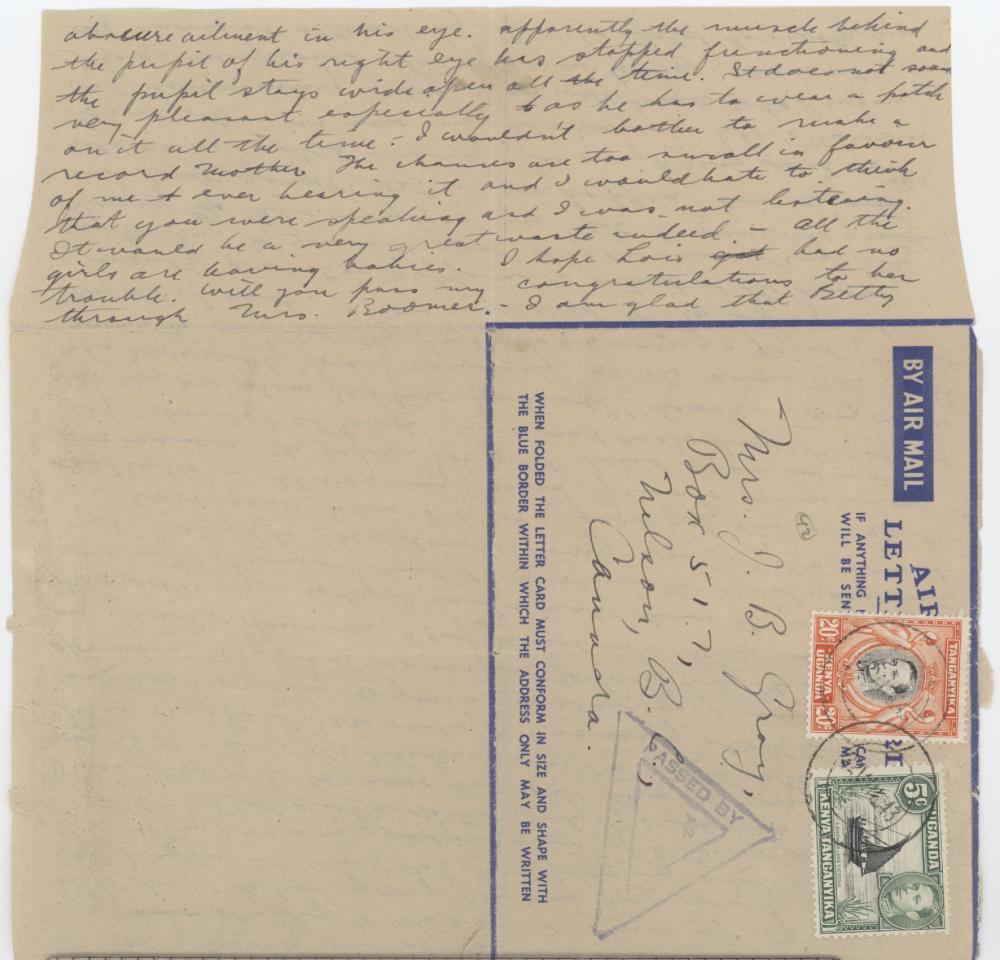 obscure ailment in his eye. apparently the muscle behind
the pupil of his right eye has stopped functioning and
the pupil stays wide open all the time. It does not sound
very pleasant especially as he has to wear a patch
on it all the time. - I wouldn't bother to make a
record Mother. The chances are too small in favour
of me + ever hearing it and I would hate to think
that you were speaking and I was not listening.
It would be a very great waste indeed. - All the
girls are having babies. I hope Lois got had no
trouble. Will you pass my congratulations to her
through Mrs. Boomer. - I am glad that Betty
BY AIR MAIL
AIR
LETT
IF ANYTHING
WILL BE SEN
Mrs. J. B. Gray,
Box 517,
Nelson, B.C.,
Canada.
42
WHEN FOLDED THE LETTER CARD MUST CONFORM IN SIZE AND SHAPE WITH
THE BLUE BORDER WITHIN WHICH THE ADDRESS ONLY MAY BE WRITTEN
PASSED BY
TANGANYIKA
20c KENYA 20c
UGANDA
5c UGANDA
KENYA TANGANYIKA